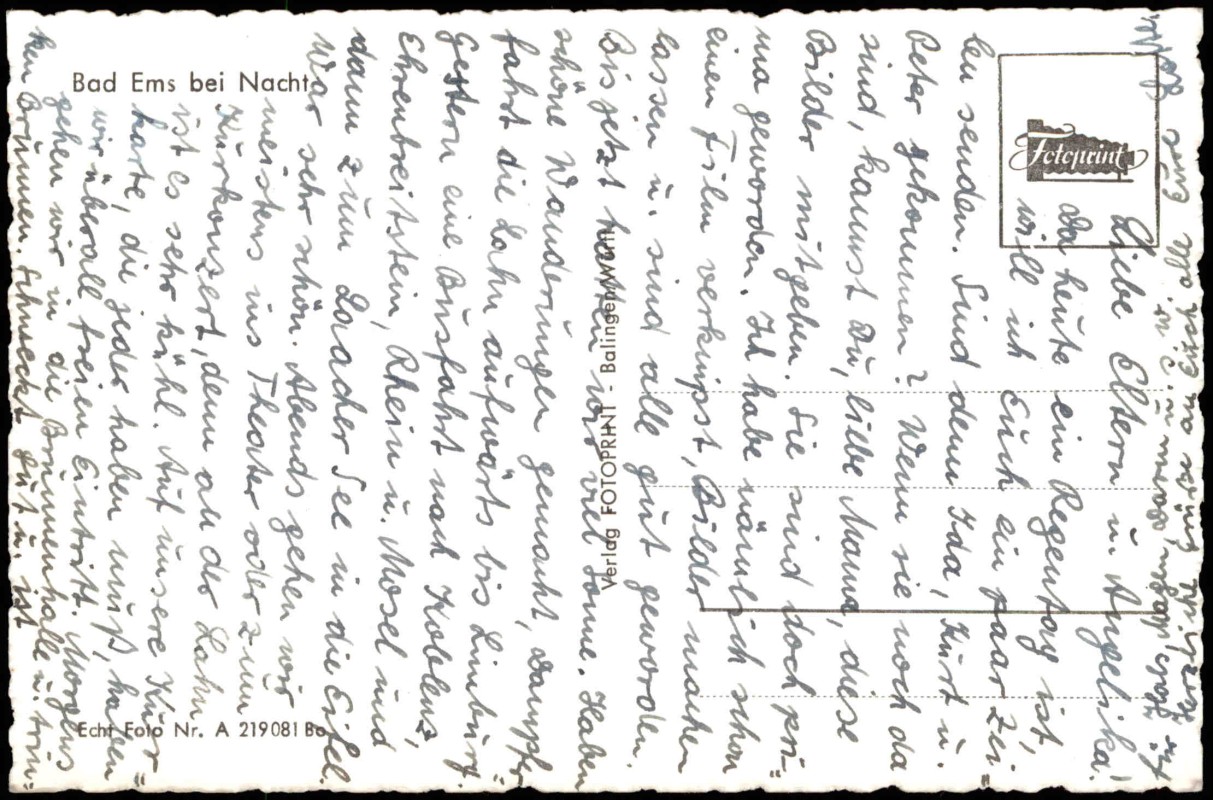 Bad Ems bei Nacht
Fotoprint
Verlag FOTOPRINT - Balingen/Württ.
Echt Foto Nr. A 219081 Bo
Liebe Eltern u. Angelika!
Da heute ein Regentag ist,
will ich Euch ein paar Zei=
len senden. Sind denn Ida, Kurt u.
Peter gekommen? Wenn sie noch da
sind, kannst Du, liebe Mama, diese
Bilder mitgeben. Sie sind doch pri=
ma geworden. Ich habe nämlich schon
einen Film verknipst, Bilder machen
lassen u. sind alle gut geworden.
Bis jetzt hatten wir viel Sonne. Haben
schöne Wanderungen gemacht, Dampfer=
fahrt die Lahn aufwärts bis Limburg.
Gestern eine Busfahrt nach Koblenz,
Ehrenbreitstein, Rhein u. Mosel und
dann zum Laacher See in die Eifel.
War sehr schön. Abends gehen wir
meistens ins Theater oder zum
Kurkonzert, denn an der Lahn
ist es sehr kühl. Auf unsere Kur=
karte, die jeder haben muß, haben
wir überall freien Eintritt. Morgens
gehen wir in die Brunnenhalle u. trin=
ken Brunnen. Schmeckt gut u. ist